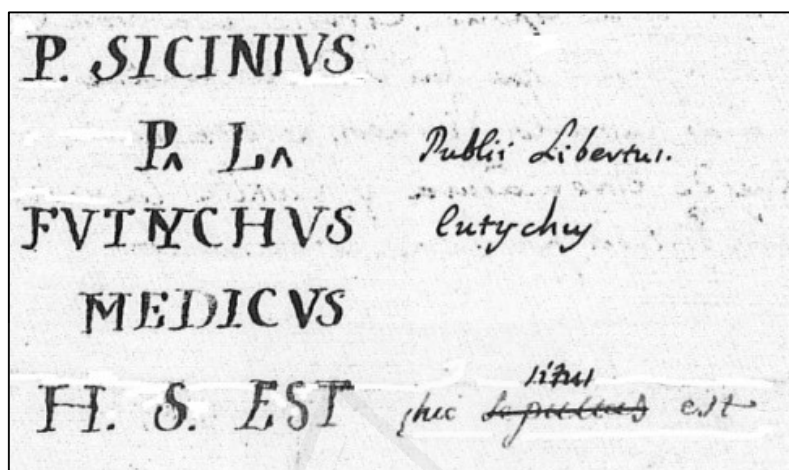 P. SICINIVS
P^ L^ Publii Libertus.
FVTYCHVS Eutychus
MEDICVS
situs
H. S. EST hic sepultus est